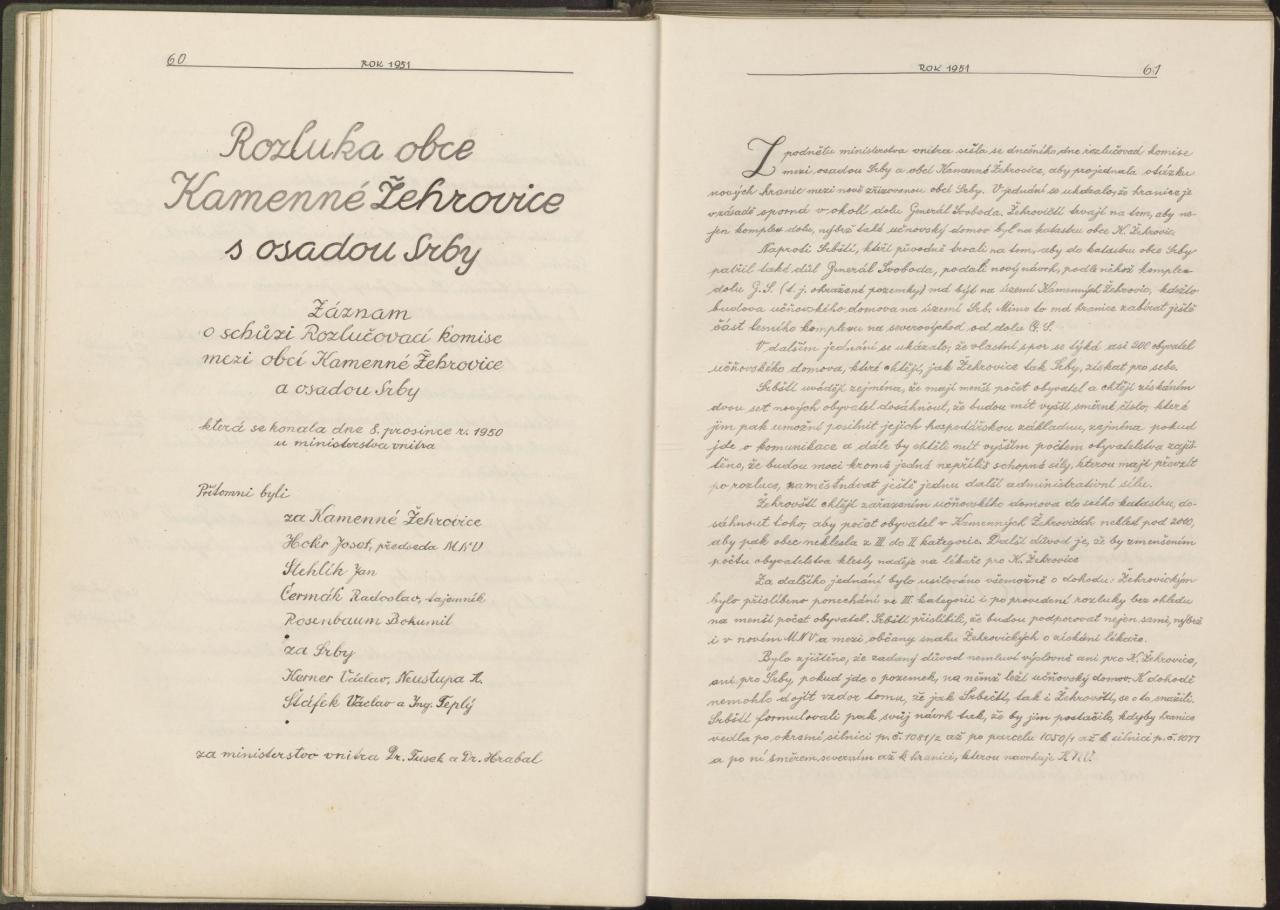 60
ROK 1951
Rozluka obce
Kamenné Žehrovice
s osadou Srby
Záznam
o schůzi Rozlučovací komise
mezi obcí Kamenné Žehrovice
a osadou Srby
která se konala dne 8. prosince r. 1950
u ministerstva vnitra
Přítomni byli
za Kamenné Žehrovice
Hokr Josef, předseda MNV
Stehlík Jan
Čermák Radoslav, tajemník
Rosenbaum Bohumil
za Srby
Kerner Václav, Neustupa A.
Štáfek Václav a Ing. Teplý
za ministerstvo vnitra Dr. Tusek a Dr. Hrabal
ROK 1951
61
Z podnětu ministerstva vnitra sešla se dnešního dne rozlučovací komise
mezi osadou Srby a obcí Kamenné Žehrovice, aby projednala otázku
nových hranic mezi nově zřizovanou obcí Srby. V jednání se ukázalo, že hranice je
v zásadě sporná v okolí dolu Generál Svoboda. Žehrovičtí trvají na tom, aby ne-
jen komplex dolu, nýbrž také učňovský domov byl na katastru obce K. Žehrovic.
Naproti Srbští, kteří původně trvali na tom, aby do katastru obce Srby
patřil také důl Generál Svoboda, podali nový návrh, podle něhož komplex
dolu G. S. (t. j. okrážené pozemky) má být na území Kamenných Žehrovic, kdežto
budova učňovského domova na území Srb. Mimo to má hranice zabírat ještě
část lesního komplexu na severovýchod od dolu G. S.
V dalším jednání se ukázalo, že vlastní spor se týká asi 200 obyvatel
učňovského domova, které chtějí, jak Žehrovice tak Srby, získat pro sebe.
Srbští uvádějí zejména, že mají menší počet obyvatel a chtějí získáním
dvou set nových obyvatel dosáhnout, že budou mít vyšší směrné číslo, které
jim pak umožní posílnit jejich hospodářskou základnu, zejména pokud
jde o komunikace a dále by chtěli mít vyšším počtem obyvatelstva zajiš-
těno, že budou moci kromě jedné nepříliš schopné síly, kterou mají převzít
po rozluce, zaměstnávat ještě jednu další administrativní sílu.
Žehrovští chtějí zařazením učňovského domova do svého katastru, do-
sáhnout toho, aby počet obyvatel v Kamenných Žehrovicích neklesl pod 2000,
aby pak obec neklesla z III. do II. kategorie. Další důvod je, že by zmenšením
počtu obyvatelstva klesly naděje na lékaře pro K. Žehrovice
Za dalšího jednání bylo usilováno všemožně o dohodu: Žehrovickým
bylo přislíbeno ponechání ve III. kategorii i po provedení rozluky bez ohledu
na menší počet obyvatel. Srbští přislíbili, že budou podporovat nejen sami, nýbrž
i v novém MNV a mezi občany snahu Žehrovických o získání lékaře.
Bylo zjištěno, že žádaný důvod nemluví výslovně ani pro K. Žehrovice,
ani pro Srby, pokud jde o pozemek, na němž leží učňovský domov. K dohodě
nemohlo dojít vzdor tomu, že jak Srbečtí, tak i Žehrovští, se o to snažili.
Srbští formulovali pak svůj návrh tak, že by jim postačilo, kdyby hranice
vedla po okresní silnici p. č. 1081/2 až po parcelu 1050/1 až k silnici p. č. 1077
a po ní směrem severním až k hranici, kterou navrhuje KNV.